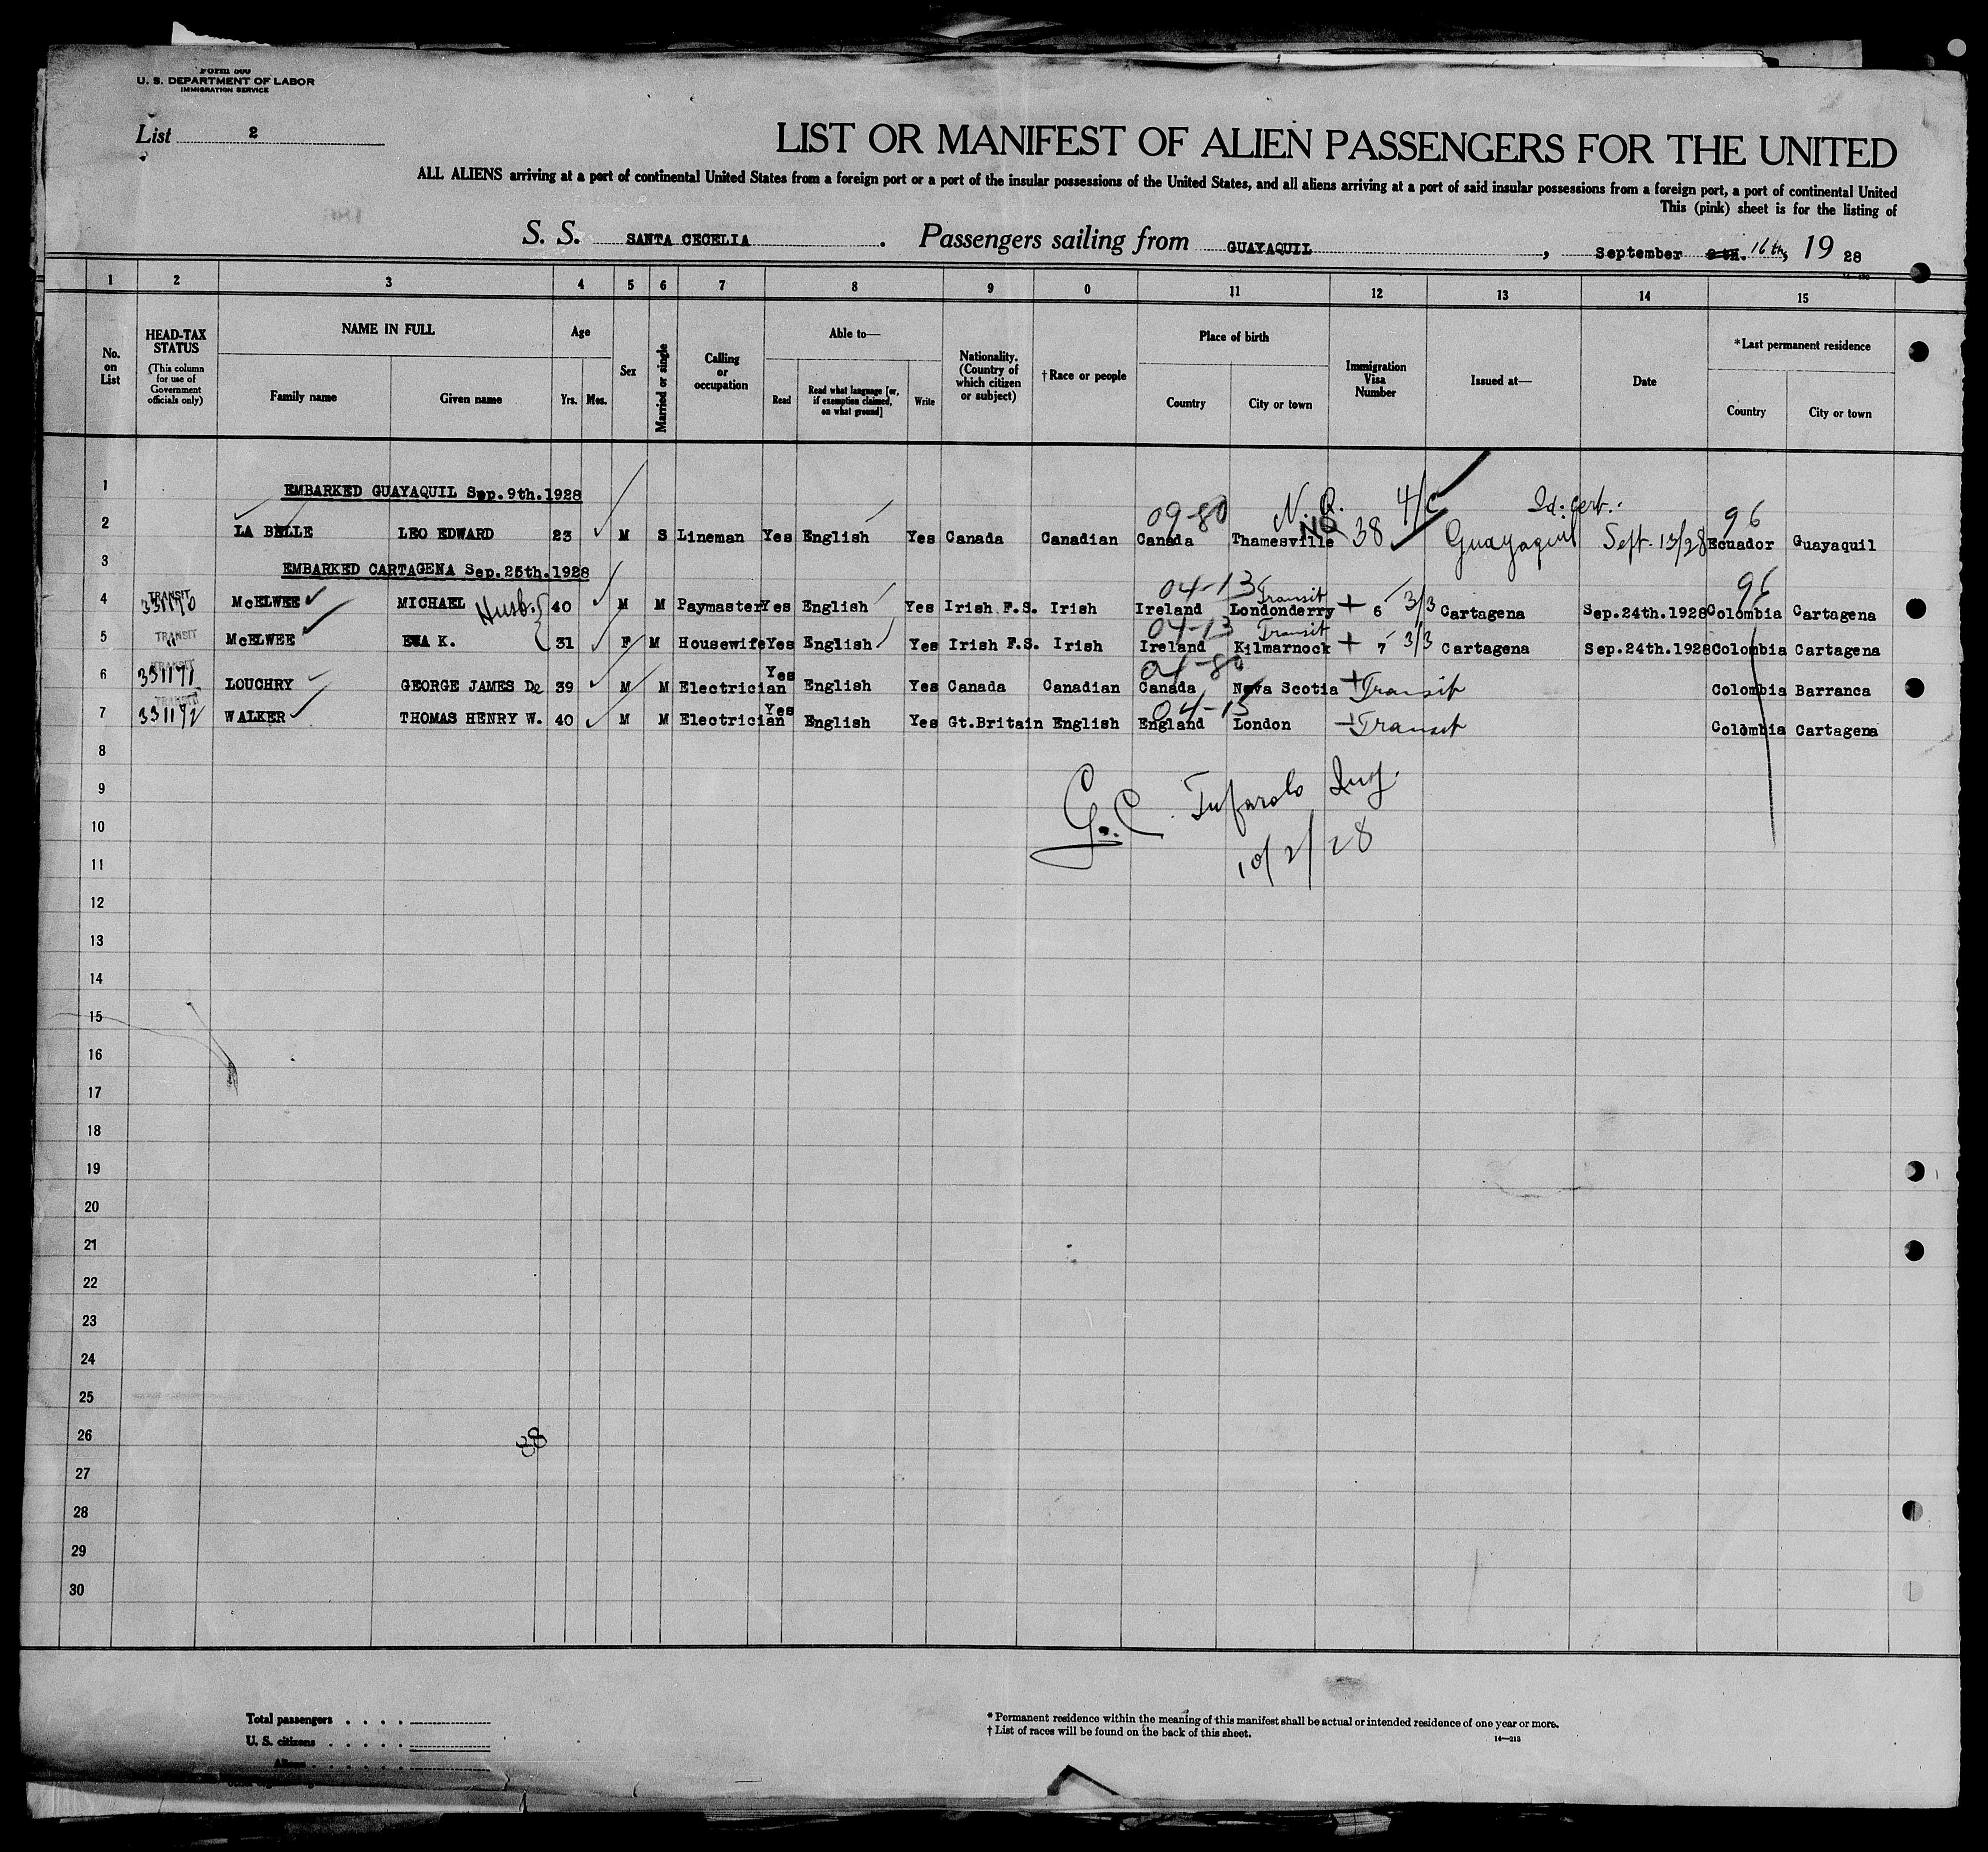 Form 500
U. S. DEPARTMENT OF LABOR
IMMIGRATION SERVICE
List 2
LIST OR MANIFEST OF ALIEN PASSENGERS FOR THE UNITED
ALL ALIENS arriving at a port of continental United States from a foreign port or a port of the insular possessions of the United States, and all aliens arriving at a port of said insular possessions from a foreign port, a port of continental United
This (pink) sheet is for the listing of
S. S. SANTA CECELIA. Passengers sailing from GUAYAQUIL, September 9th. 16th, 19 28
1 2 3 4 5 6 7 8 9 0 11 12 13 14 15
No. on List
HEAD-TAX STATUS (This column for use of Government officials only)
NAME IN FULL
Family name Given name
Age
Yrs. Mos.
Sex
Married or single
Calling or occupation
Able to—
Read Read what language [or, if exemption claimed, on what ground] Write
Nationality. (Country of which citizen or subject)
†Race or people
Place of birth
Country City or town
Immigration Visa Number
Issued at—
Date
*Last permanent residence
Country City or town
1 EMBARKED GUAYAQUIL Sep.9th.1928
09-80 N. Q. 4/C Id. cert. 96
2 LA BELLE LEO EDWARD 23 M S Lineman Yes English Yes Canada Canadian Canada Thamesville NQ 38 Guayaquil Sept. 13/28 Ecuador Guayaquil
3 EMBARKED CARTAGENA Sep.25th.1928
TRANSIT 04-13 Transit 96
4 331170 McELWEE MICHAEL Husb. 40 M M Paymaster Yes English Yes Irish F.S. Irish Ireland Londonderry + 6 3/3 Cartagena Sep.24th.1928 Colombia Cartagena
TRANSIT 04-13 Transit
5 " McELWEE EVA K. 31 F M Housewife Yes English Yes Irish F.S. Irish Ireland Kilmarnock + 7 3/3 Cartagena Sep.24th.1928 Colombia Cartagena
TRANSIT 04-80
6 331171 LOUGHRY GEORGE JAMES De 39 M M Electrician Yes English Yes Canada Canadian Canada Nova Scotia + Transit Colombia Barranca
TRANSIT 04-13
7 331172 WALKER THOMAS HENRY W. 40 M M Electrician Yes English Yes Gt.Britain English England London + Transit Colombia Cartagena
8
9
G. C.
10
10/2/28
11
12
13
14
15
16
17
18
19
20
21
22
23
24
25
26
27
28
29
30
Total passengers
U. S. citizens
Aliens
* Permanent residence within the meaning of this manifest shall be actual or intended residence of one year or more.
† List of races will be found on the back of this sheet.
14—213